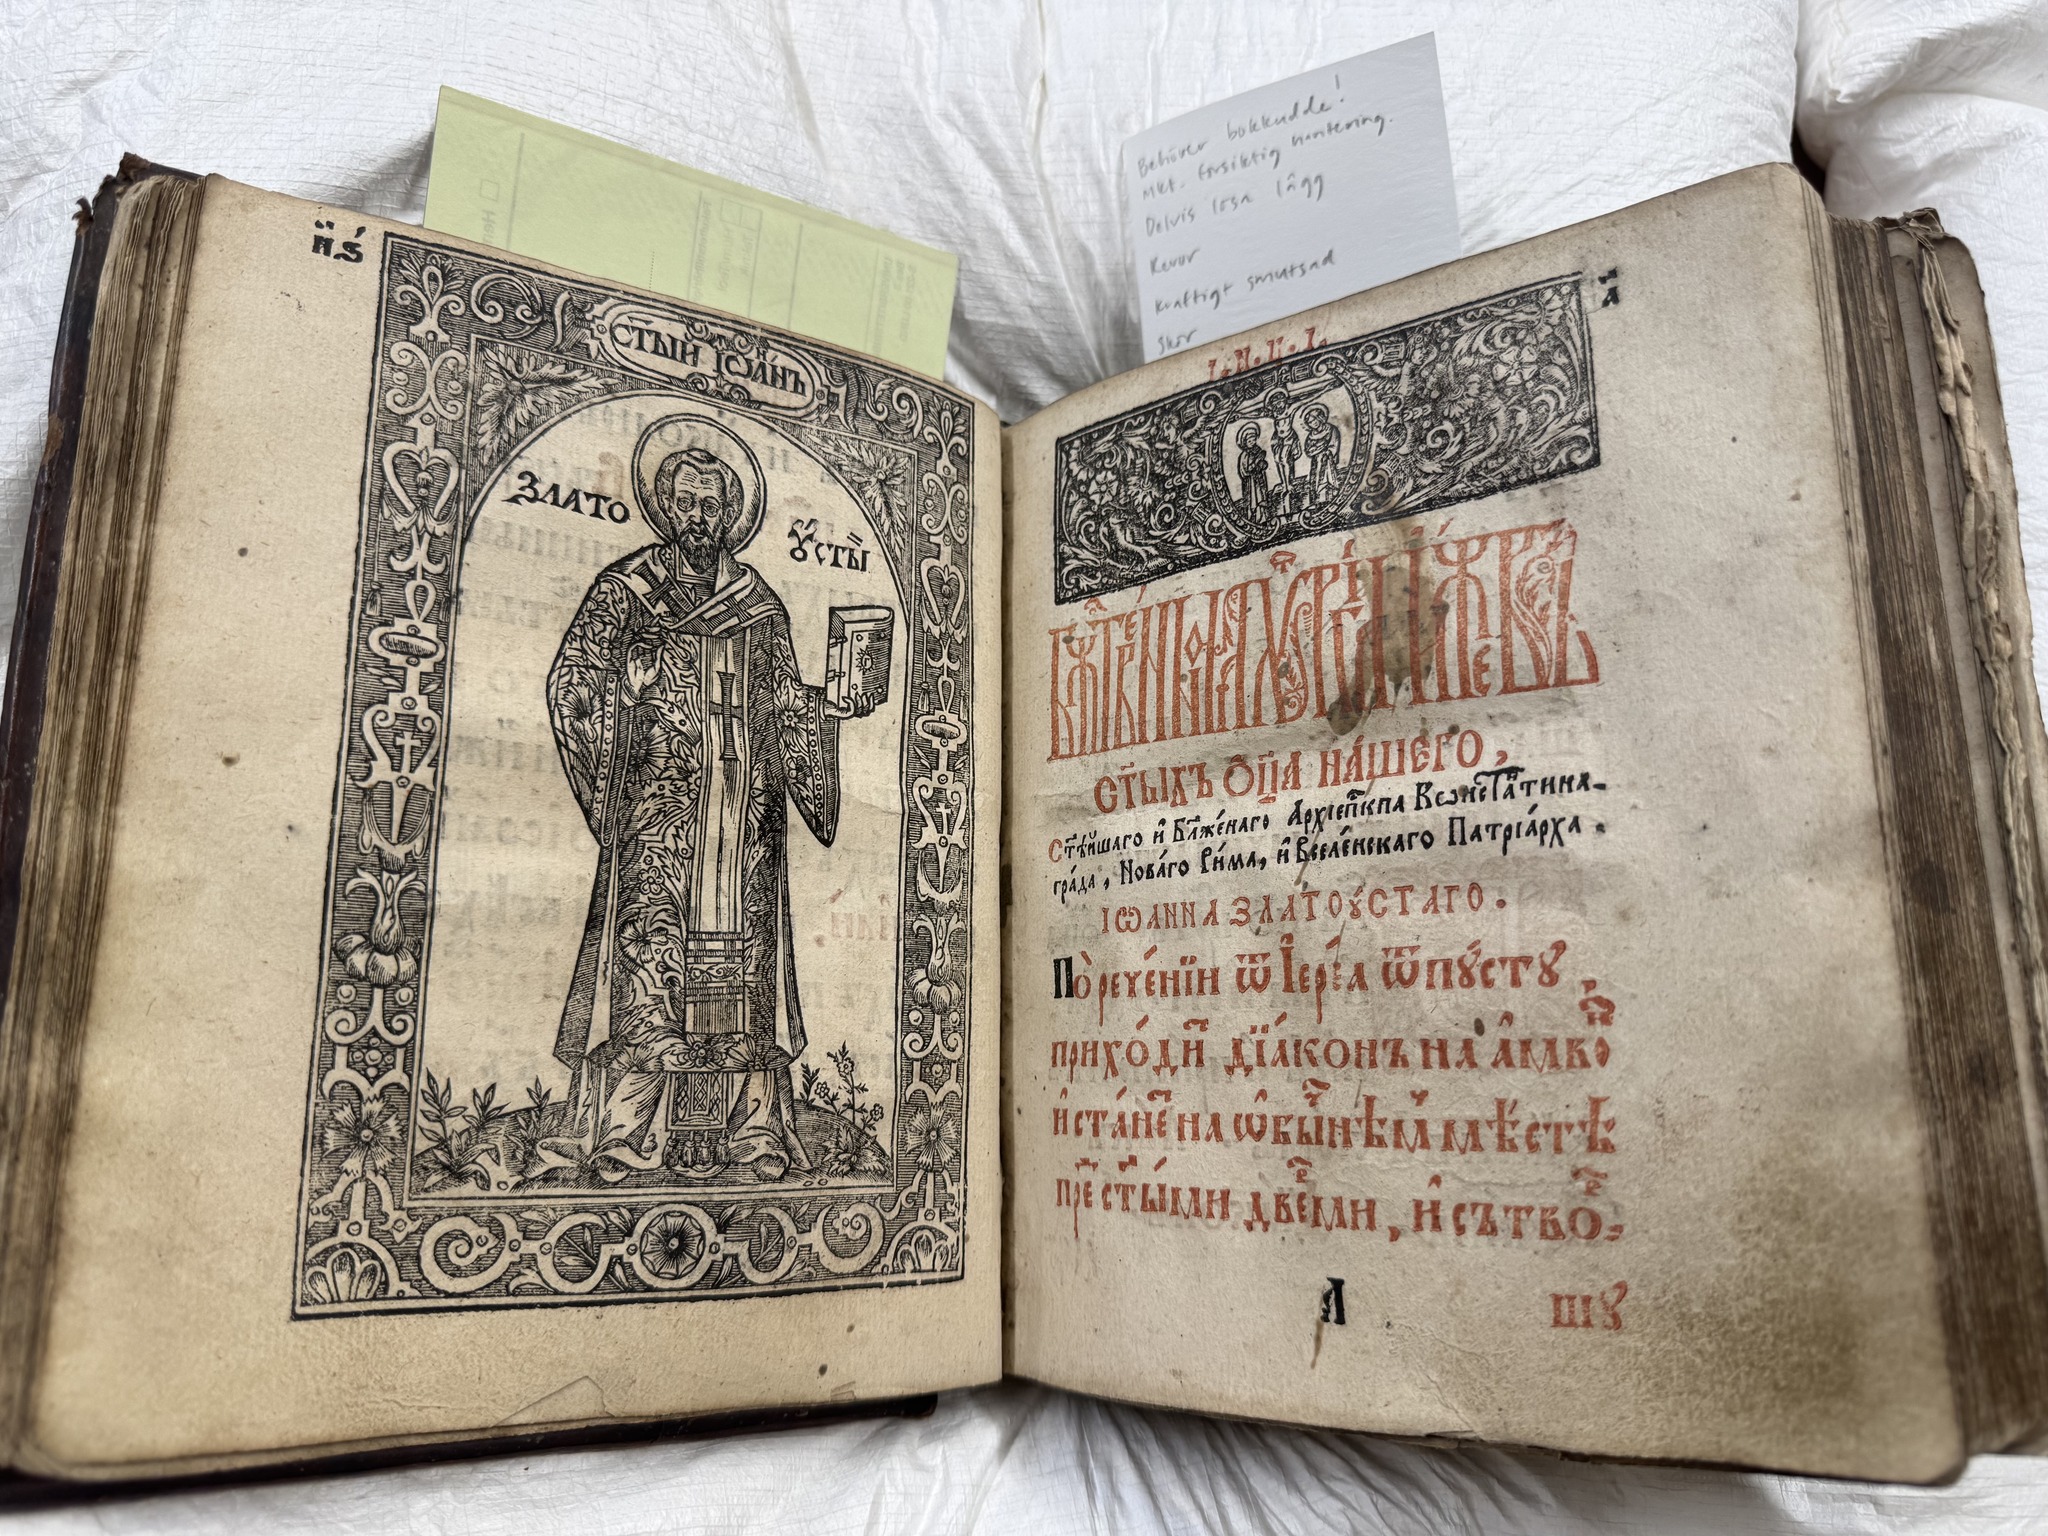 Behöver bokkudde!
Mkt. försiktig hantering.
Delvis lösa lägg
Revor
kraftigt smutsad
Skör
н҃ѕ
ст҃ый іѡа́нъ
злато
ꙋ́стый
І. Н. Ц. І.
а҃
ст҃ыхъ ѻц҃а на́шего,
ст҃ѣ́йшаго и҆ бл҃же́наго Архїеп҃кпа Коньстѧ́тина-
гра́да, Нова́го Ри́ма, и҆ вселе́нскаго Патрїа́рха.
їѡанна златоꙋстаго.
По̀рече́нїи ѿ їере́а ѿпꙋстꙋ,
прихо́ди дїа́конъ на а҆мво
и҆ ста́не на ѡ҆бы́нѣм мѣ́стѣ
пре ст҃ы́ми две́ми, и҆ сътво:
л
шꙋ